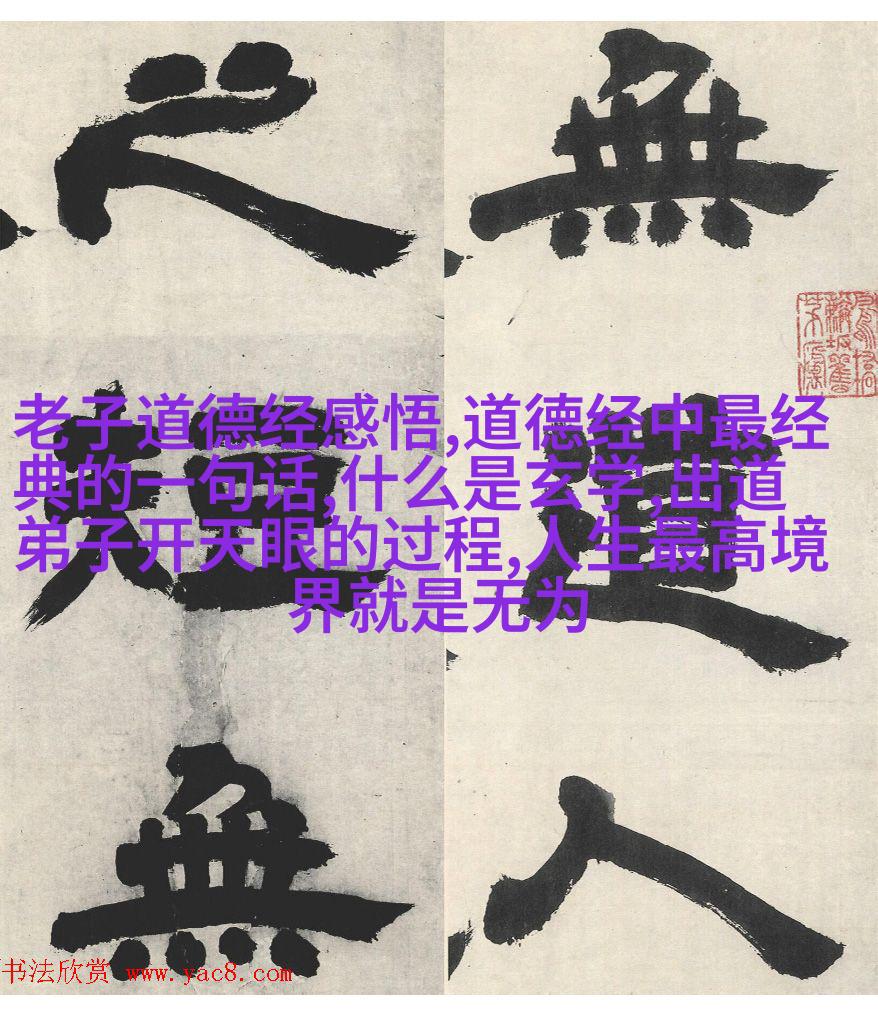 無道人
之短無
老子道德经感悟,道德经中最经
典的一句话,什么是玄学,出道
弟子开天眼的过程,人生最高境
界就是无为
书法欣赏 www.yac8.com